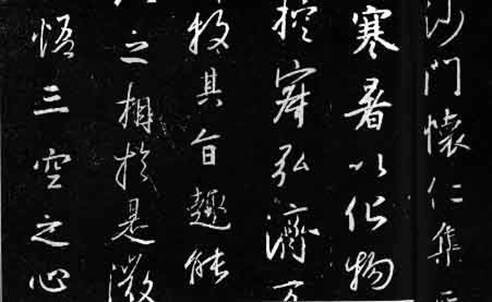 沙門懷仁集
寒暑以化物
控寂弘濟万
投其旨趣能
之相於是微
悟三空之心